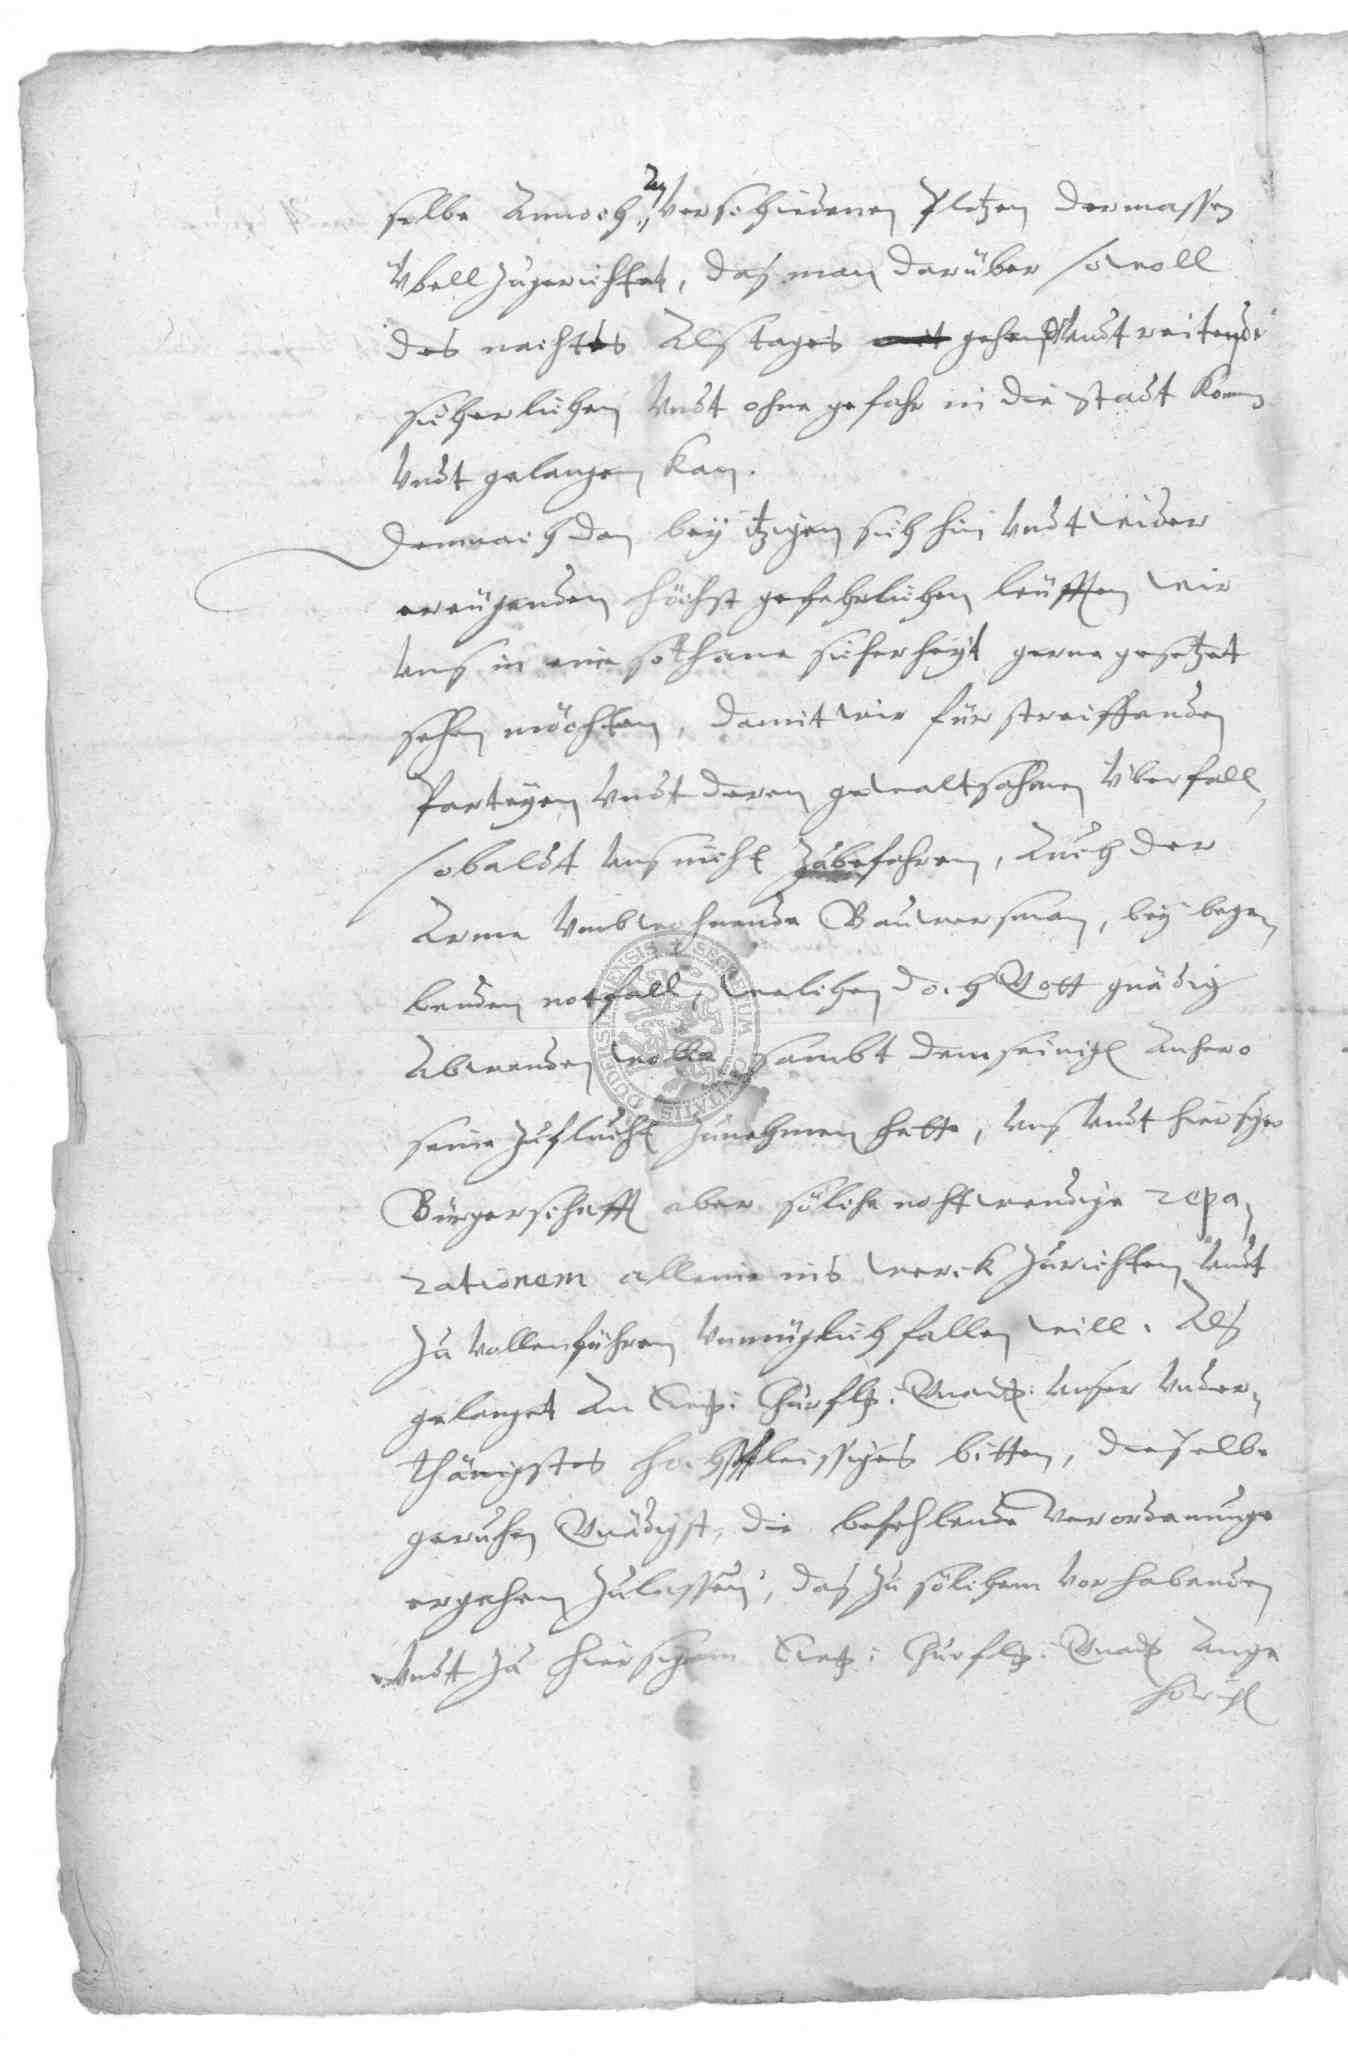 selbe Annoch, An Verschiedenen Pletzen dermassen
Vbell Zugerichtet, das man darüber sowoll
des nachtes Alß tages gehen Vndt reitendt
sicherlichen Vndt ohne gefahr in die stadt Komen
Vndt gelangen Kan.
Demnach dan bey itzigen sich hin Vndt wider
ereügenden höchst gefehrlichen leüfften wir
Vns in eine sothane sicherheyt gerne gesetzet
sehen möchten, damit wir für streiffenden
Parteyen Vndt deren gewaltsahmen Vberfall,
sobaldt Vns nicht Zubefahren, Auch der
Arme Vmbwohnende Bauwersman, bey bege-
benden notfall, welichen doch Gott gnädig
Abwenden wolle, sambt dem seinigen Anhero
seine Zuflucht Zunehmen hette, Vns Vndt hiersiger
Bürgerschafft aber söliche nohtwendige repa-
rationem alleine ins werck Zurichten Vndt
Zu Vollenführen Vnmüglich fallen will. Alß
gelanget An Ew: Churfl: Gnad: Vnser Vnder-
thänigstes hochfleissiges bitten, dieselbe
geruhen Gnädigst, die befehlende Verordenunge
ergehen Zulassen, das Zu sölichem Vorhabenden
Vndt Zu hiersigem Ew: Churfl: Gnad: Ange
hörigen
SIGILLUM CIVITATIS